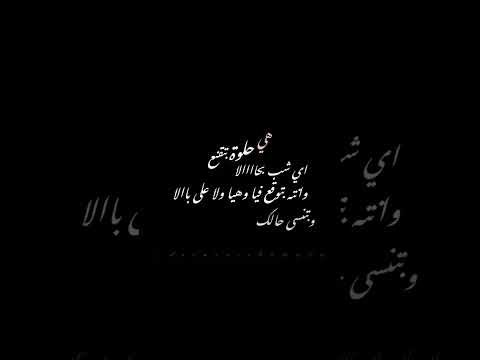 هي حلوة بتقنع
اي شب بحاااالا
وانته بتوقع فيا وهيا ولا على باالا
وبتنسى حالك
اي شب
وانته بتوقع
ى باالا
وبتنسى